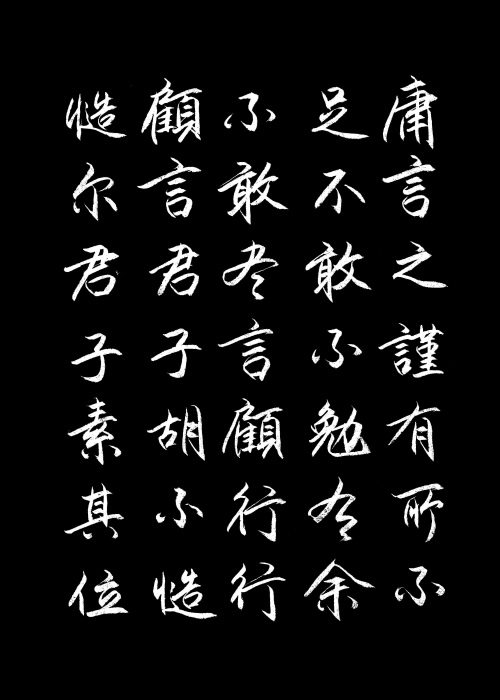 庸言之謹有所不
足不敢不勉有余
不敢尽言顧行行
顧言君子胡不慥
慥尔君子素其位